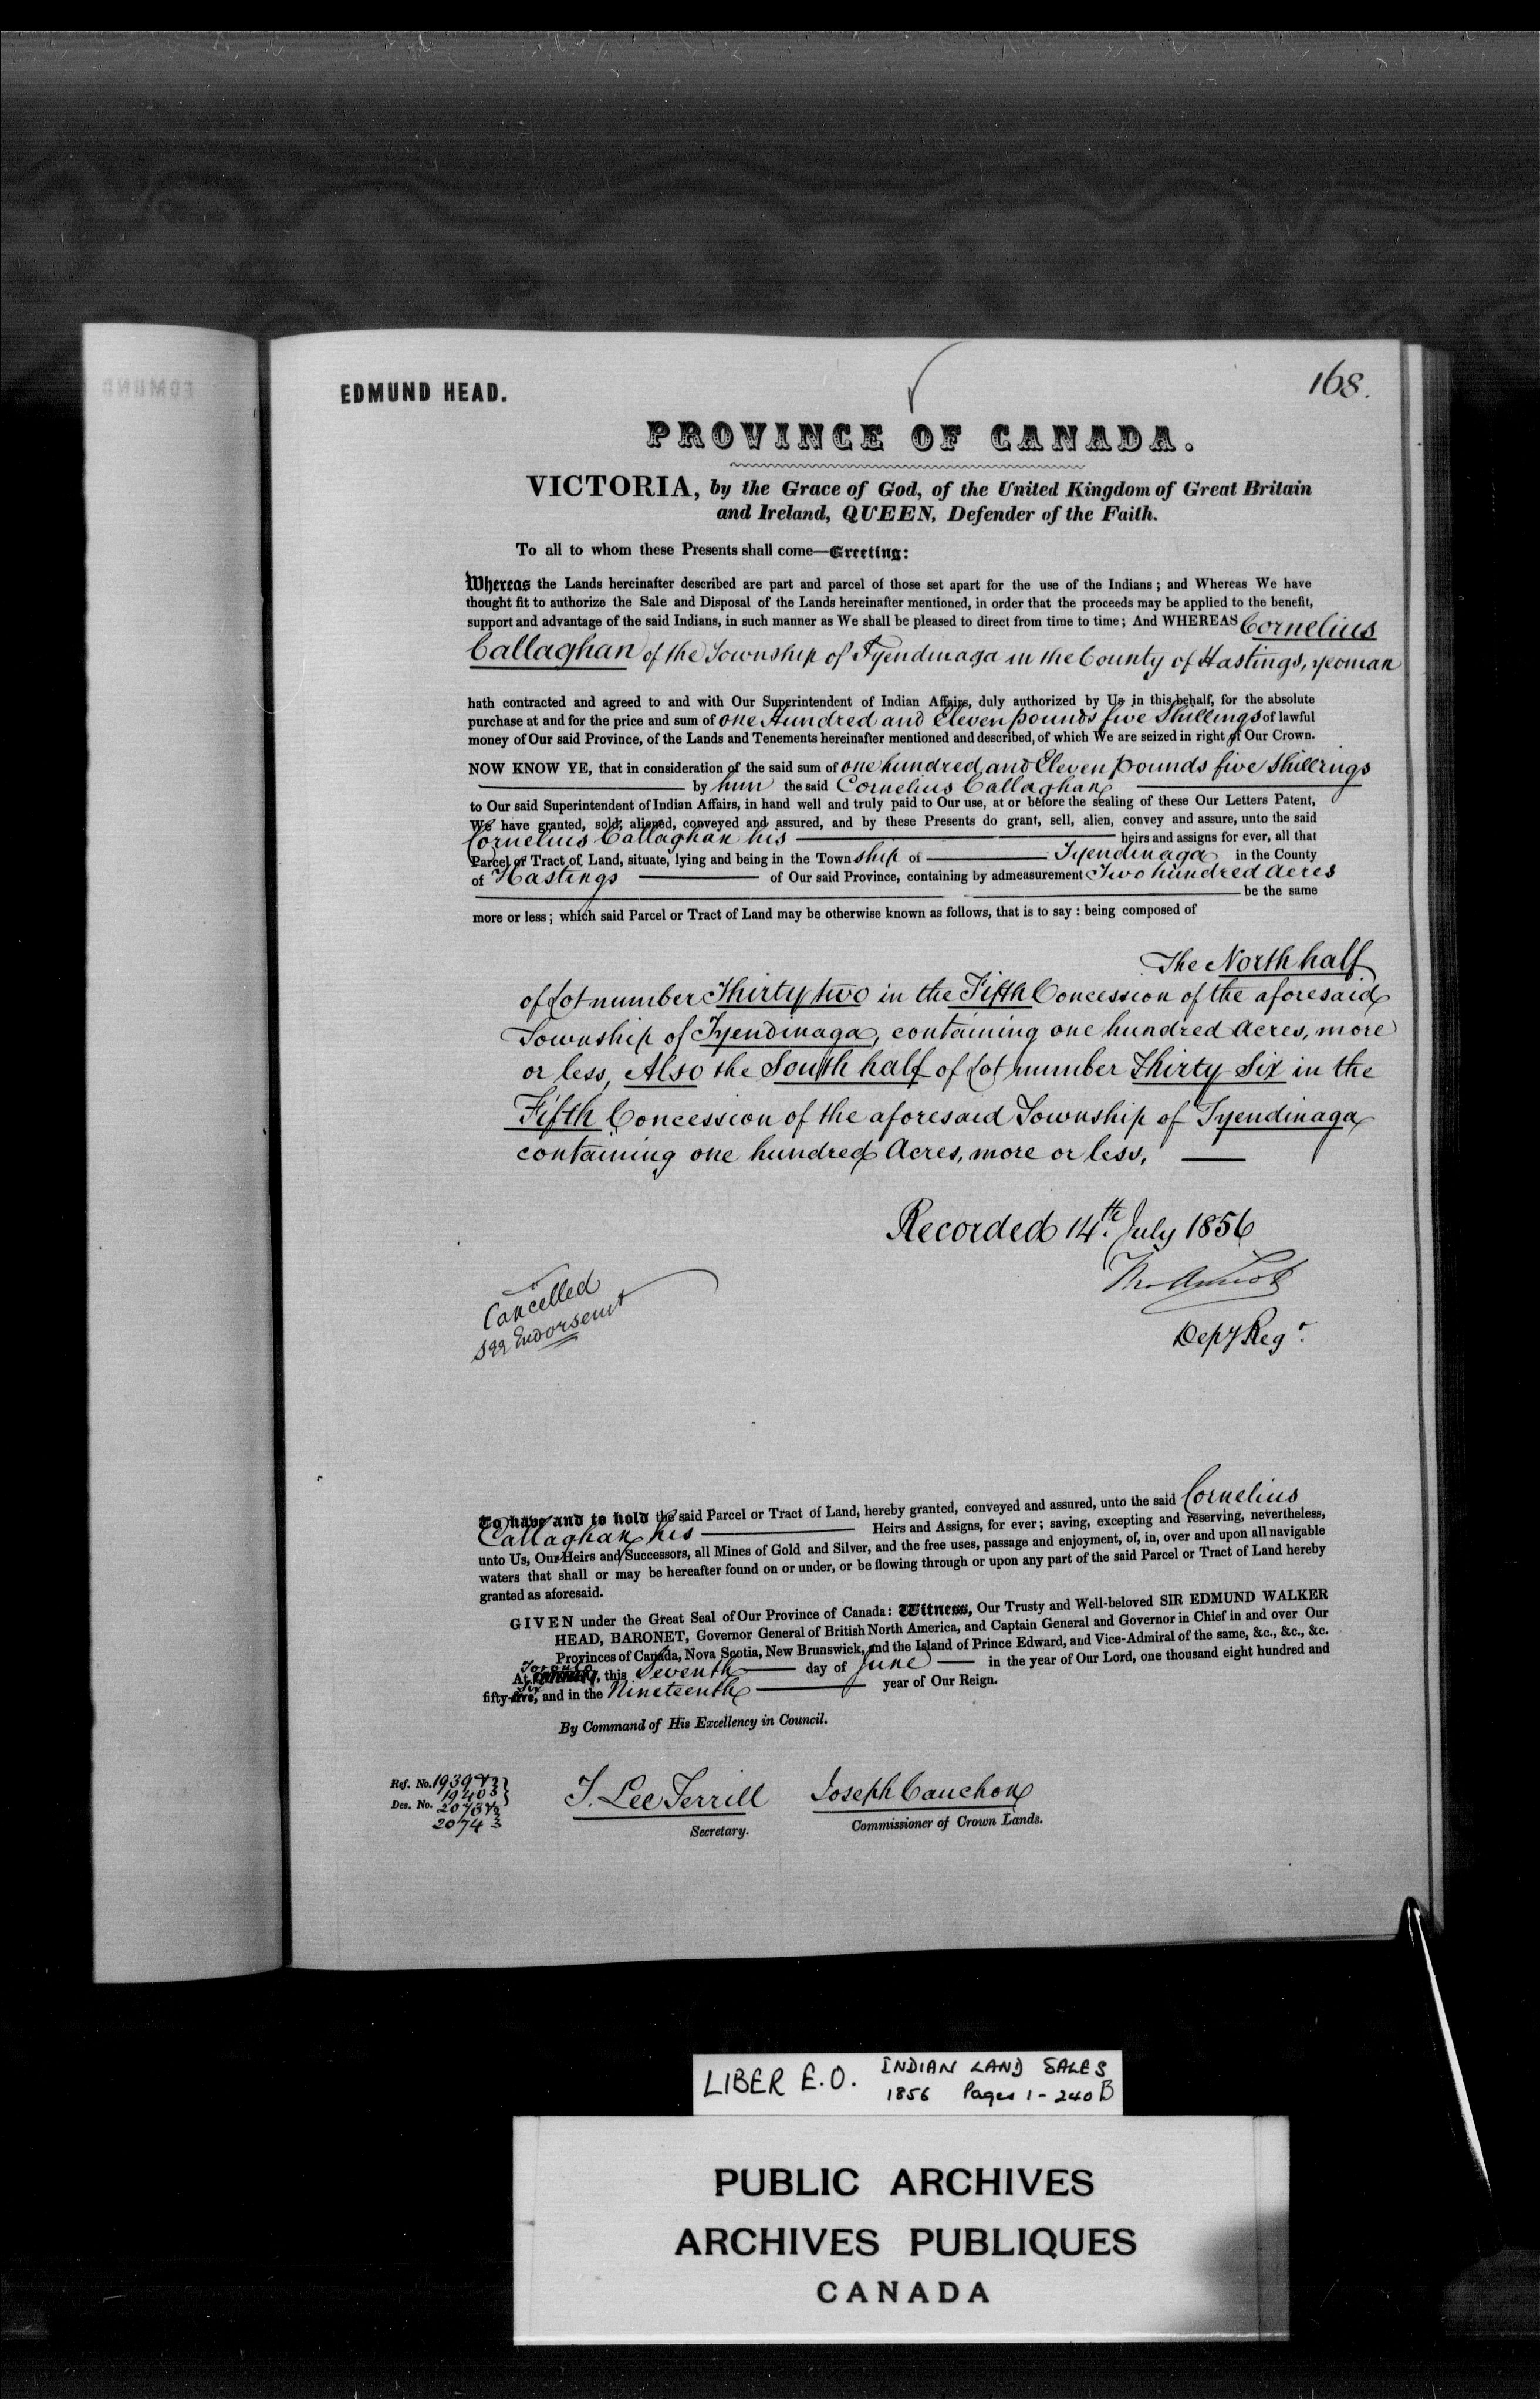 EDMUND HEAD.
168.
PROVINCE OF CANADA.
VICTORIA, by the Grace of God, of the United Kingdom of Great Britain
and Ireland, QUEEN, Defender of the Faith.
To all to whom these Presents shall come—Greeting:
Whereas the Lands hereinafter described are part and parcel of those set apart for the use of the Indians; and Whereas We have
thought fit to authorize the Sale and Disposal of the Lands hereinafter mentioned, in order that the proceeds may be applied to the benefit,
support and advantage of the said Indians, in such manner as We shall be pleased to direct from time to time; And WHEREAS Cornelius
Callaghan of the Township of Tyendinaga in the County of Hastings, yeoman
hath contracted and agreed to and with Our Superintendent of Indian Affairs, duly authorized by Us in this behalf, for the absolute
purchase at and for the price and sum of one Hundred and Eleven pounds five Shillings of lawful
money of Our said Province, of the Lands and Tenements hereinafter mentioned and described, of which We are seized in right of Our Crown.
NOW KNOW YE, that in consideration of the said sum of one hundred and Eleven pounds five Shillings
by him the said Cornelius Callaghan
to Our said Superintendent of Indian Affairs, in hand well and truly paid to Our use, at or before the sealing of these Our Letters Patent,
We have granted, sold, aliened, conveyed and assured, and by these Presents do grant, sell, alien, convey and assure, unto the said
Cornelius Callaghan his heirs and assigns for ever, all that
Parcel or Tract of Land, situate, lying and being in the Township of Tyendinaga in the County
of Hastings of Our said Province, containing by admeasurement Two hundred Acres
be the same
more or less; which said Parcel or Tract of Land may be otherwise known as follows, that is to say: being composed of
The North half
of Lot number Thirty two in the Fifth Concession of the aforesaid
Township of Tyendinaga, containing one hundred Acres, more
or less, Also the South half of Lot number Thirty Six in the
Fifth Concession of the aforesaid Township of Tyendinaga
containing one hundred Acres, more or less.
Recorded 14th. July 1856
Depy Regr.
Cancelled
see Endorsemt
To have and to hold the said Parcel or Tract of Land, hereby granted, conveyed and assured, unto the said Cornelius
Callaghan his Heirs and Assigns, for ever; saving, excepting and reserving, nevertheless,
unto Us, Our Heirs and Successors, all Mines of Gold and Silver, and the free uses, passage and enjoyment, of, in, over and upon all navigable
waters that shall or may be hereafter found on or under, or be flowing through or upon any part of the said Parcel or Tract of Land hereby
granted as aforesaid.
GIVEN under the Great Seal of Our Province of Canada: Witness, Our Trusty and Well-beloved SIR EDMUND WALKER
HEAD, BARONET, Governor General of British North America, and Captain General and Governor in Chief in and over Our
Provinces of Canada, Nova Scotia, New Brunswick, and the Island of Prince Edward, and Vice-Admiral of the same, &c., &c., &c.
At Toronto, this Seventh day of June in the year of Our Lord, one thousand eight hundred and
fifty-five, Six and in the Nineteenth year of Our Reign.
By Command of His Excellency in Council.
Ref. No.
Des. No.
20743
T. Lee Terrill
Secretary.
Joseph Cauchon
Commissioner of Crown Lands.
LIBER E.O. INDIAN LAND SALES
1856 Pages 1 - 240 B
PUBLIC ARCHIVES
ARCHIVES PUBLIQUES
CANADA